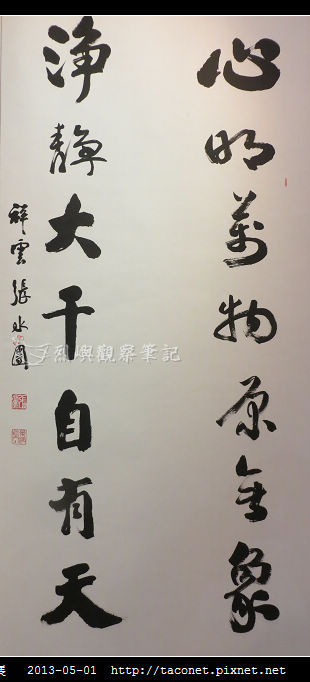 心明萬物原無象
淨靜大千自有天
祥雲張水圖
烈嶼觀察筆記
展 2013-05-01 http://taconet.pixnet.net